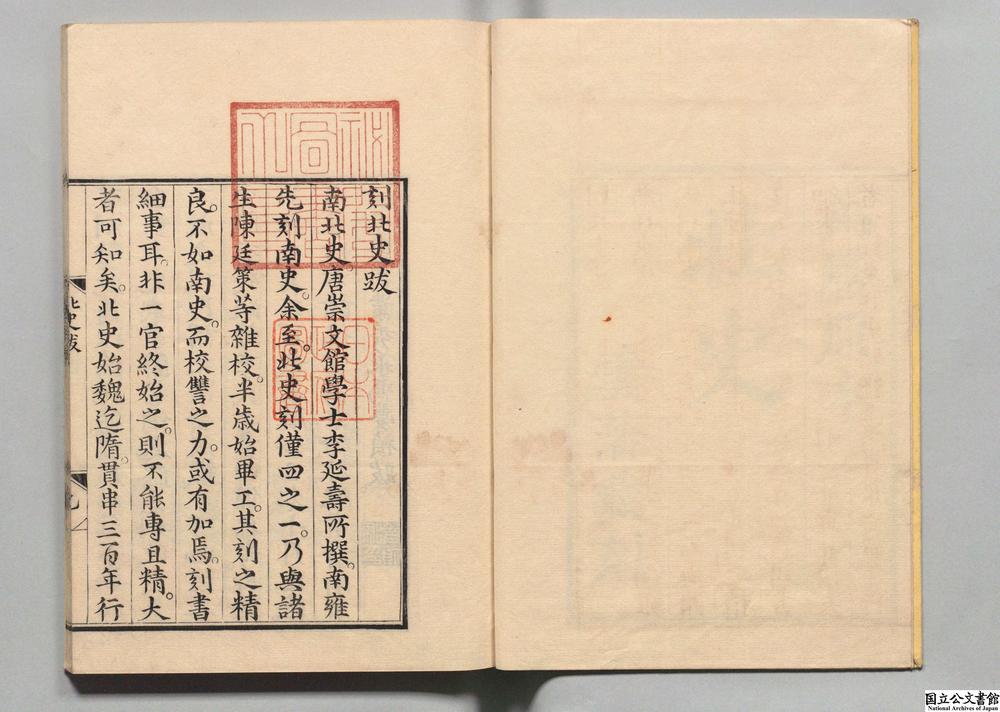 刻北史跋
南北史。唐崇文館學士李延壽所撰。南雍
先刻南史。余至。北史刻僅四之一。乃與諸
生陳廷策等雜校。半歲始畢工。其刻之精
良。不如南史。而校讐之力。或有加焉。刻書
細事耳。非一官終始之。則不能專且精。大
者可知矣。北史始魏迄隋。貫串三百年行
北史跋
九
国立公文書館
National Archives of Japan